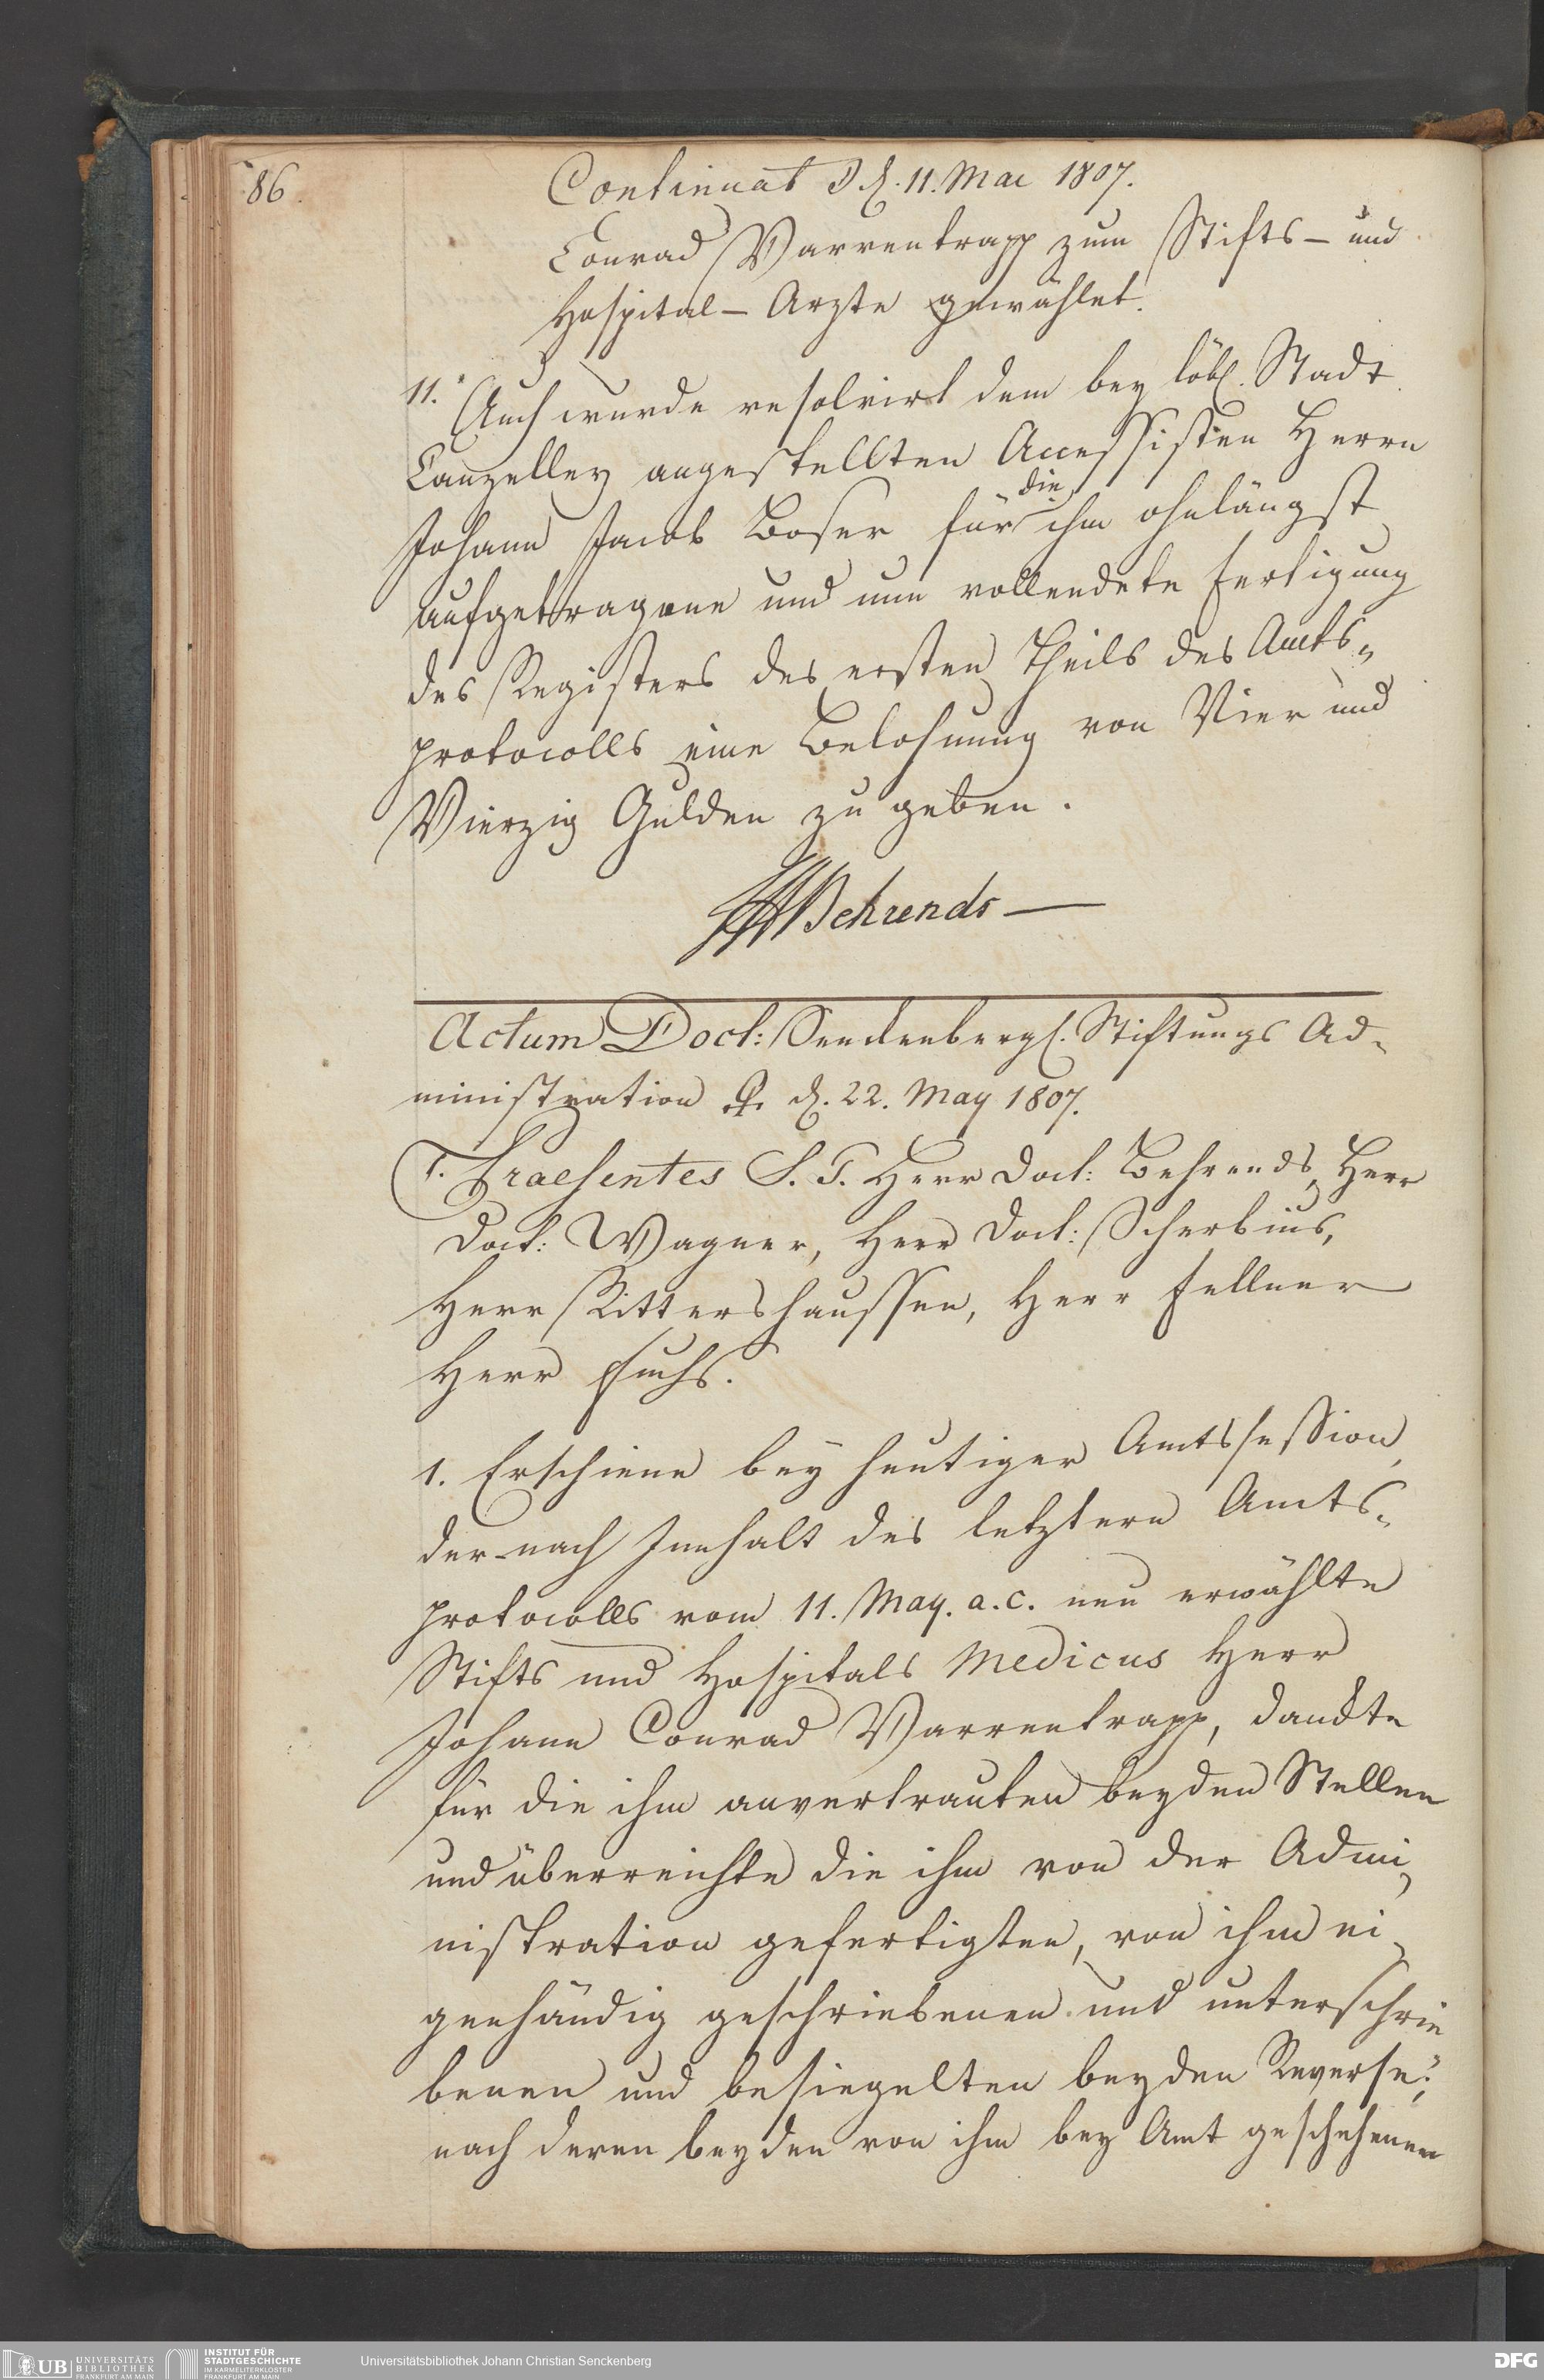 86.
Continuat D d. 11. Mai 1807.
Conrad Varrentrapp zum Stifts- und
Hospital- Arzte gewählet.
11. Auch wurde resolvirt dem bey löbl. Stadt
Canzelley angestellten Accessisten Herrn
die
Johann Jacob Boser für ihm ohnlängst
aufgetragene und nun vollendete Fertigung
des Registers des ersten Theils des Amts-
protocolls eine Belohnung von Vier und
Vierzig Gulden zu geben.
Behrends
Actum Doct: Senckenbergl. Stiftungs Ad-
ministration d. 22. May 1807.
Praesentes S. T. Herr Doct: Behrends, Herr
Doct: Wagner, Herr Doct: Scherbius,
Herr Rittershaussen, Herr Fellner
Herr Fuchs.
1. Erschiene bey heutiger Amtssession,
der nach Innhalt des letztern Amts-
protocolls vom 11. May. a. c. neu erwählte
Stifts und Hospitals Medicus Herr
Johann Conrad Varrentrapp, danckte
für die ihm anvertrauten beyden Stellen
und überreichte die ihm von der Admi-
nistration gefertigten, von ihm ei-
genhändig geschriebenen und unterschrie
benen und besiegelten beyden Reverse;
nach deren beyden von ihm bey Amt geschehenen
UB UNIVERSITÄTS
BIBLIOTHEK
FRANKFURT AM MAIN
INSTITUT FÜR
STADTGESCHICHTE
IM KARMELITERKLOSTER
FRANKFURT AM MAIN
Universitätsbibliothek Johann Christian Senckenberg
DFG